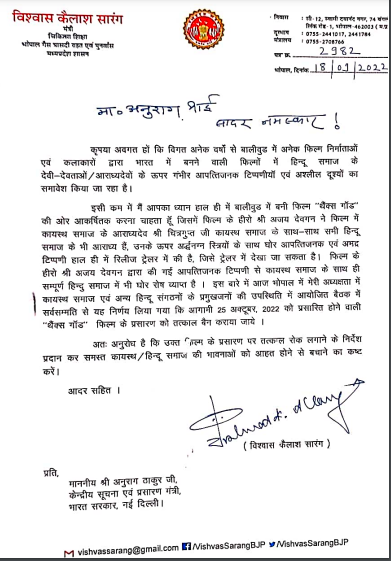 विश्वास कैलाश सारंग
मंत्री
चिकित्सा शिक्षा
भोपाल गैस त्रासदी राहत एवं पुनर्वास
मध्यप्रदेश शासन
निवास : सी-12, स्वामी दयानंद नगर, 74 बंगला
लिंक रोड-1, भोपाल-462003 (म.प्र
दूरभाष : 0755-2441017, 2441784
मंत्रालय : 0755-2708766
पत्र क्र. 2982
भोपाल, दिनांक 18/09/2022
मा. अनुराग भाई
सादर नमस्कार !
कृपया अवगत हों कि विगत अनेक वर्षों से बालीवुड में अनेक फिल्म निर्माताओं
एवं कलाकारों द्वारा भारत में बनने वाली फिल्मों में हिन्दू समाज के
देवी–देवताओं/आराध्यदेवों के ऊपर गंभीर आपत्तिजनक टिप्पणीयाँ एवं अश्लील दृश्यों का
समावेश किया जा रहा है।
इसी क्रम में मैं आपका ध्यान हाल ही में बालीवुड में बनी फिल्म "थैंक्स गॉड"
की ओर आकर्षितक करना चाहता हूँ जिसमें फिल्म के हीरो श्री अजय देवगन ने फिल्म में
कायस्थ समाज के आराध्यदेव श्री चित्रगुप्त जी कायस्थ समाज के साथ–साथ सभी हिन्दू
समाज के भी आराध्य हैं, उनके ऊपर अर्द्धनग्न स्त्रियों के साथ घोर आपत्तिजनक एवं अभद्र
टिप्पणी हाल ही में रिलीज ट्रेलर में की है, जिसे ट्रेलर में देखा जा सकता है। फिल्म के
हीरो श्री अजय देवगन द्वारा की गई आपत्तिजनक टिप्पणी से कायस्थ समाज के साथ ही
सम्पूर्ण हिन्दु समाज में भी घोर रोष व्याप्त है। इस बारे में आज भोपाल में मेरी अध्यक्षता में
कायस्थ समाज एवं अन्य हिन्दु संगठनों के प्रमुखजनों की उपस्थिति में आयोजित बैठक में
सर्वसम्मति से यह निर्णय लिया गया कि आगामी 25 अक्टूबर, 2022 को प्रसारित होने वाली
"थैंक्स गॉड" फिल्म के प्रसारण को तत्काल बैन कराया जाये ।
अतः अनुरोध है कि उक्त फिल्म के प्रसारण पर तत्काल रोक लगाने के निर्देश
प्रदान कर समस्त कायस्थ/हिन्दू समाज की भावनाओं को आहत होने से बचाने का कष्ट
करें।
आदर सहित ।
(विश्वास कैलाश सारंग)
प्रति,
माननीय श्री अनुराग ठाकुर जी,
केन्द्रीय सूचना एवं प्रसारण मंत्री,
भारत सरकार, नई दिल्ली।
vishvassarang@gmail.com /VishvasSarangBJP /VishvasSarangBJP